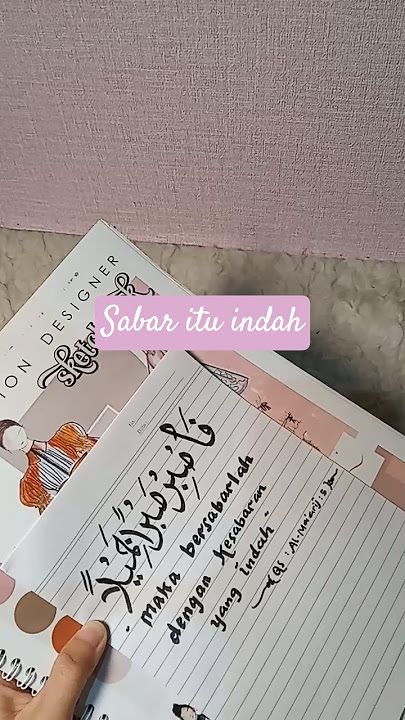 Sabar itu indah
ION DESIGNER
sketchbook
No
Date
فَاصْبِرْ صَبْرًا جَمِيلًا
maka bersabarlah
dengan kesabaran
yang indah
QS : Al-Ma'arij : 5